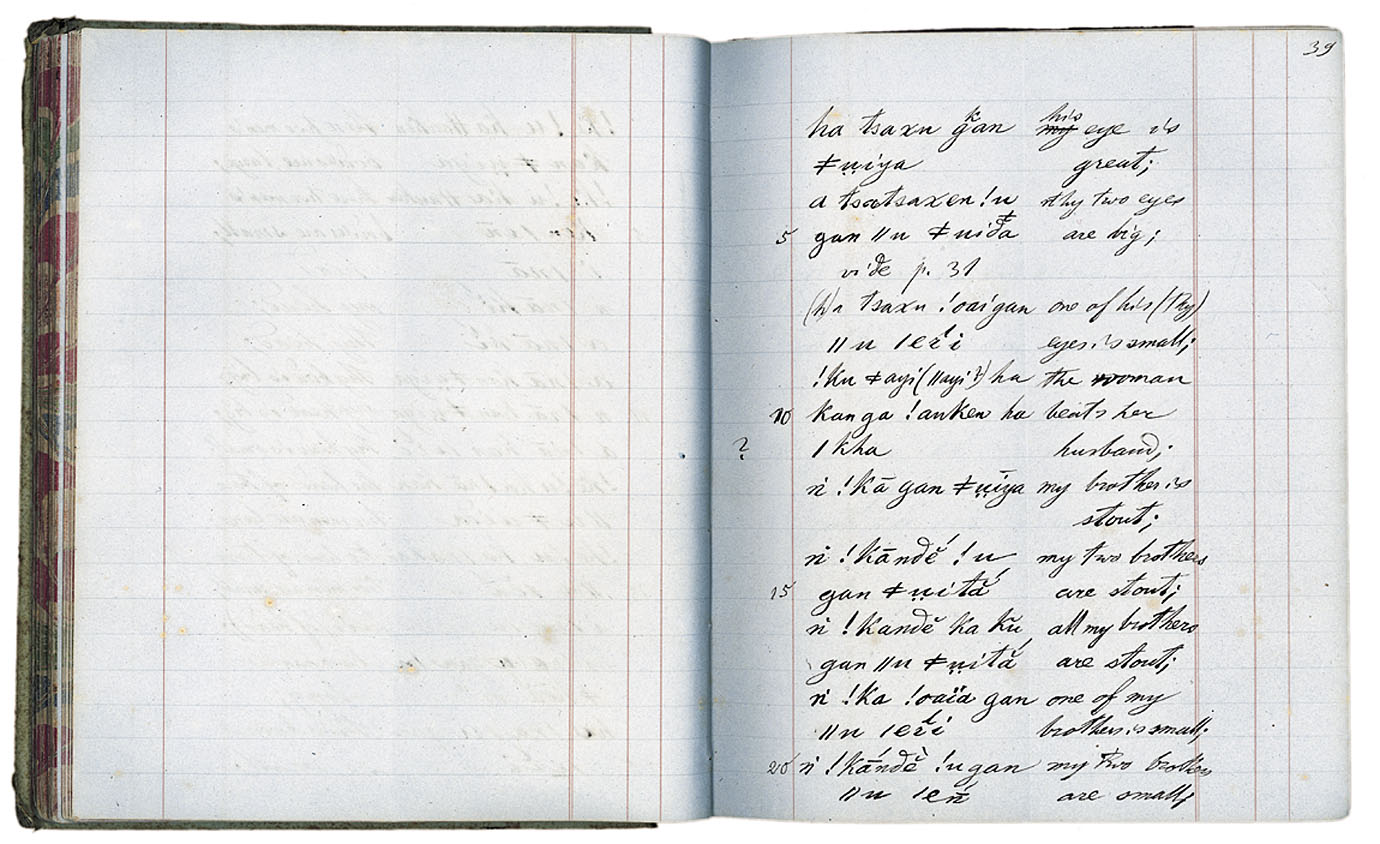 39
ha tsaxu gan his my eye is
ǂuiya great;
a tsatsaxen !u thy two eyes
5 gan ǁu ǂuida are big;
vide p. 31
(h)a tsaxu !oaigan one of his (thy)
ǁu ǀeři eyes is small;
!ku ǂayi (ǁayi?) ha the woman
10 kanga !auken ha beats her
? ǀkha husband;
ṅ !kā gan ǂuïya my brother is
stout;
ṅ !kāndĕ !u my two brothers
15 gan ǂuitá are stout;
ṅ !kandĕ ka kŭ all my brothers
gan ǁu ǂuitá are stout;
ṅ !ka !oaïa gan one of my
ǁu ǀeři brothers is small;
20 ṅ !kándĕ !u gan my two brothers
ǁu are small;